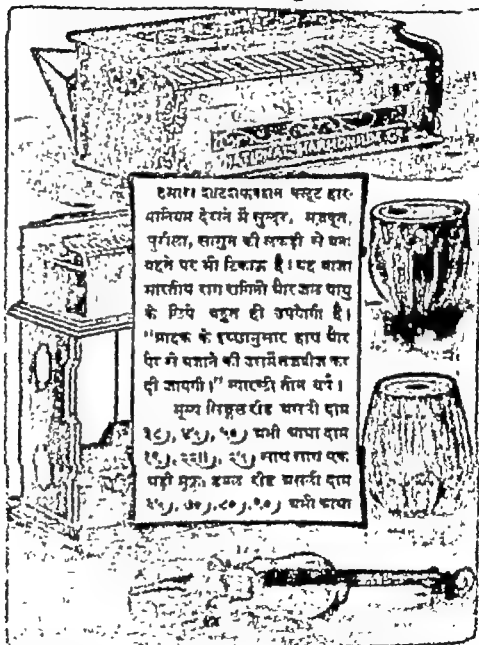 NATIONAL HARMONIUM CO
हमारा फ्लूट हार-
मोनियम देखने में सुन्दर, मजबूत,
सुरीला, सागुन की लकड़ी से बना
पड़ने पर भी टिकाऊ है। यह बाजा
भारतीय राग रागिनी और जल वायु
के लिये बहुत ही उपयोगी है।
"ग्राहक के इच्छानुसार हाथ और
पैर से बजाने की उसमें तजवीज कर
दी जायगी।" ग्यारण्टी तीन वर्ष।
मूल्य सिङ्गल रीड असली दाम
३८), ४५), ५०) अभी आधा दाम
१९), २२॥), २५) साथ साथ एक
घड़ी मुफ्त डबल रीड असली दाम
७०), ८०), ९०) अभी आधा